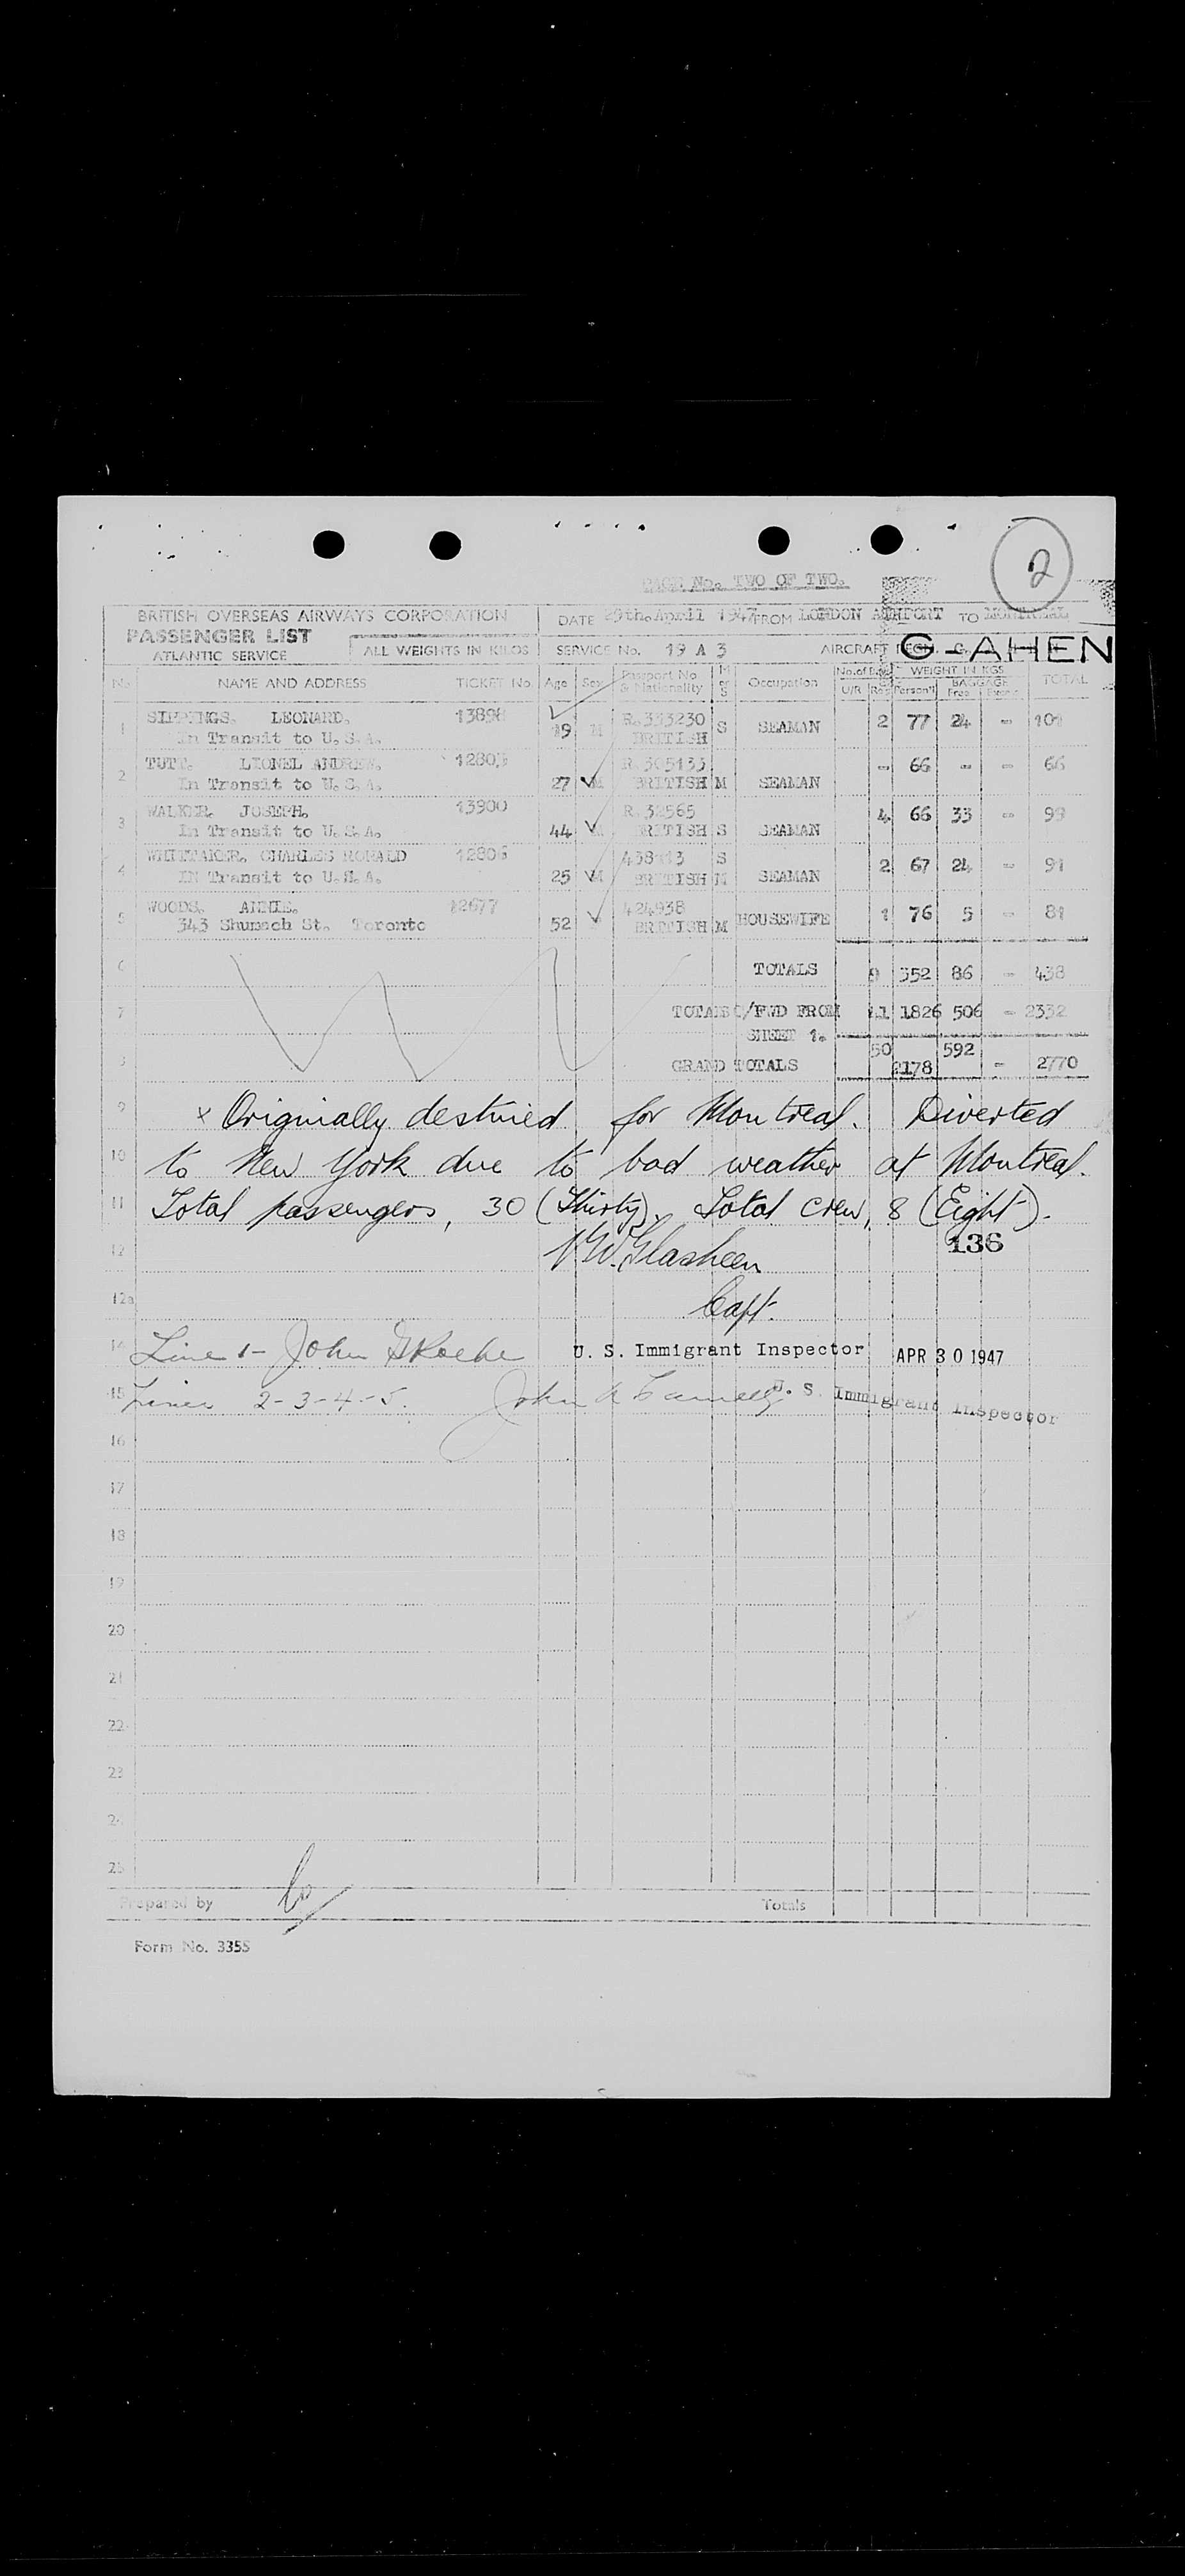 2
PAGE No. TWO OF TWO.
BRITISH OVERSEAS AIRWAYS CORPORATION DATE 29th. April 1947 FROM LONDON AIRPORT TO MONTREAL
PASSENGER LIST
ATLANTIC SERVICE ALL WEIGHTS IN KILOS SERVICE No. 19 A 3 AIRCRAFT REGN. G-AHEN
No. NAME AND ADDRESS TICKET No. Age Sex Passport No. & Nationality M or S Occupation No. of Bags WEIGHT IN KGS TOTAL
U/R Personal BAGGAGE Free
1 SIPPINGS. LEONARD. 13898 19 M R.353230 S SEAMAN 2 77 24 - 101
In Transit to U.S.A. BRITISH
2 TUTT. LIONEL ANDREW. 12803 66 - - 66
In Transit to U.S.A. 27 M BRITISH M SEAMAN
3 WALKER. JOSEPH. 13900 R.32565 4 66 33 - 99
In Transit to U.S.A. 44 BRITISH S SEAMAN
4 WHITTAKER. CHARLES RONALD 12806 S 2 67 24 - 91
IN Transit to U.S.A. 25 M BRITISH M SEAMAN
5 WOODS. ANNIE. 12677 424938 1 76 5 - 81
343 Shumach St. Toronto 52 BRITISH M HOUSEWIFE
6 TOTALS 9 352 86 - 438
7 TOTALS C/FWD FROM 41 1826 506 - 2332
SHEET 1.
8 GRAND TOTALS 50 2178 592 - 2770
9 x Originally destined for Montreal. Diverted
10 to New York due to bad weather at Montreal.
11 Total passengers, 30 (Thirty). Total crew, 8 (Eight).
12 Glasheen 136
12a Capt.
14 Line 1- John Roche U. S. Immigrant Inspector APR 30 1947
15 Lines 2-3-4-5. John U. S. Immigrant Inspector
16
17
18
19
20
21
22
23
24
25
Prepared by Totals
Form No. 3355